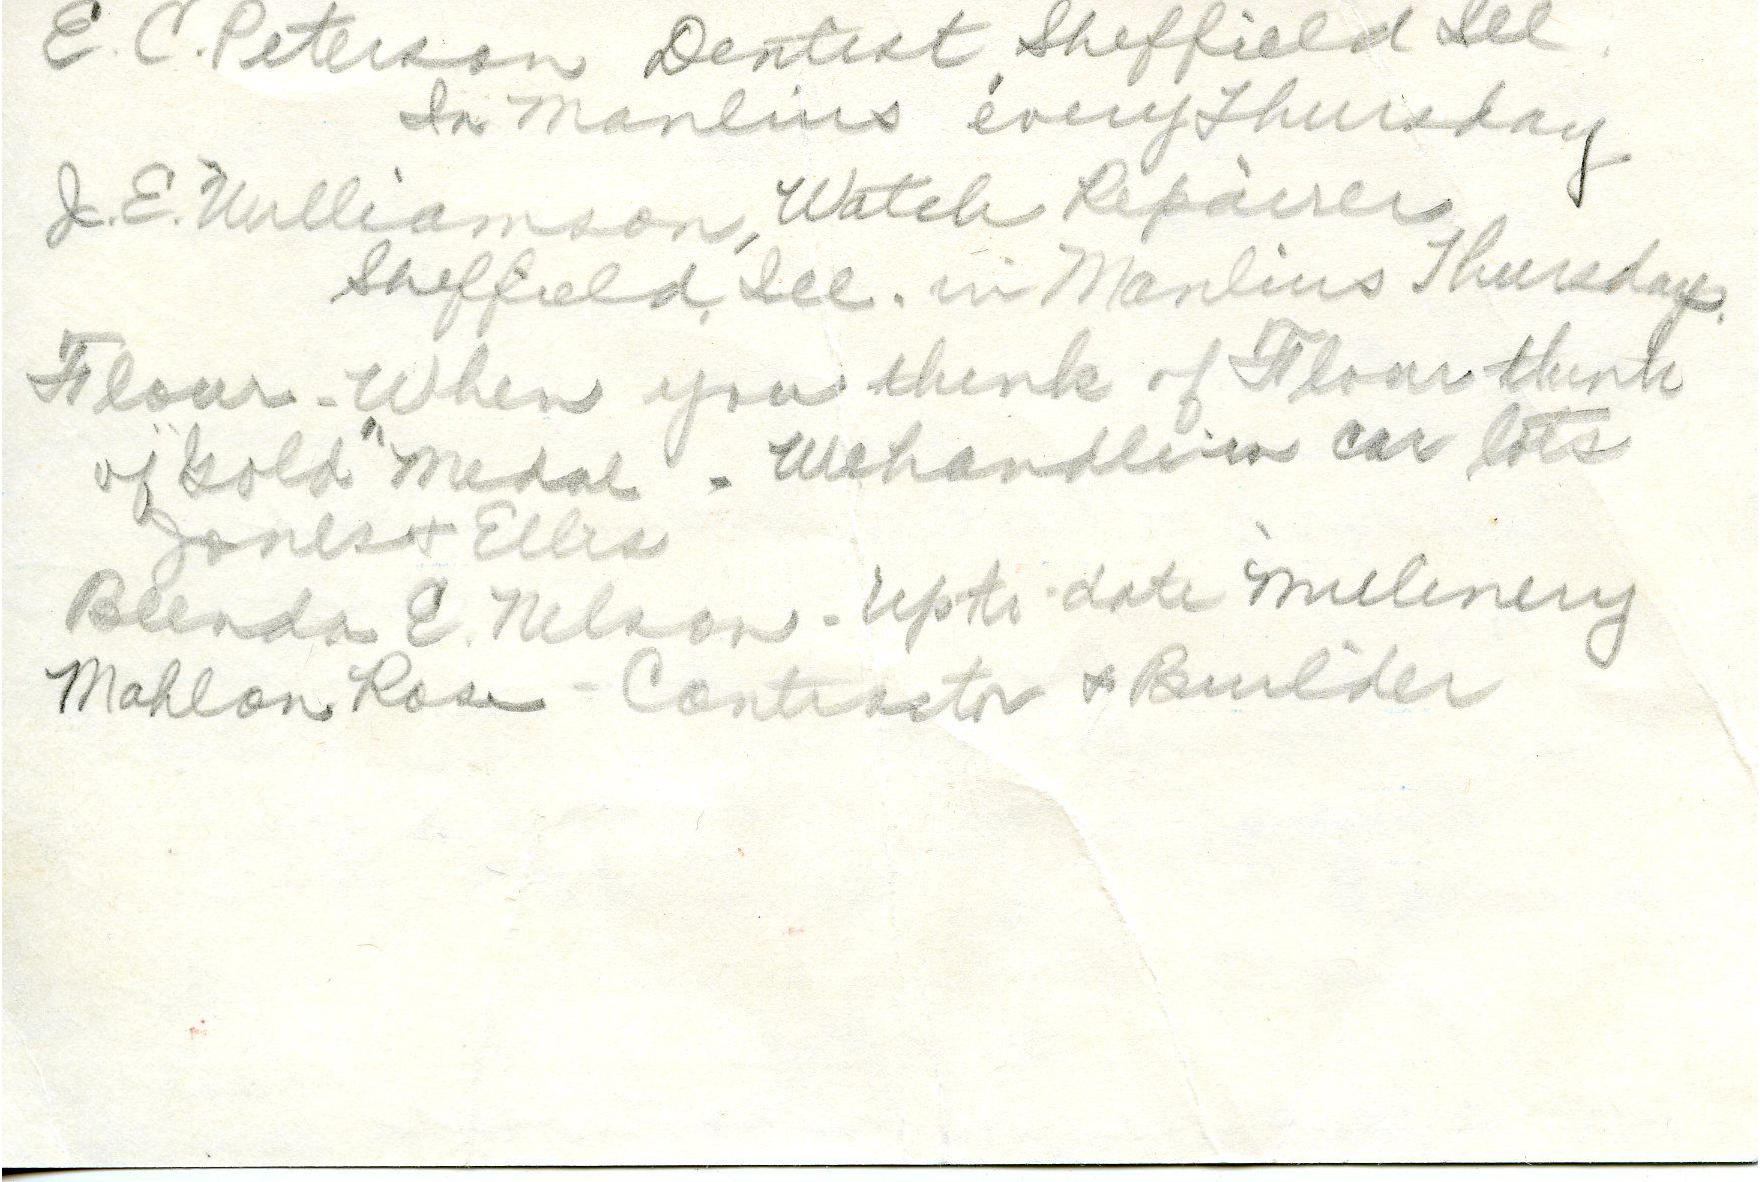 E. C. Peterson Dentist, Sheffield Ill.
In Manlius every Thursday
J. E. Williamson, Watch Repairer,
Sheffield, Ill. in Manlius Thursdays.
Flour - When you think of Flour think
of "Gold" Medal - We handle in car lots
Jones & Ellis
Blenda E. Nelson - Up to date Milinery
Mahlon Rose - Contractor & Builder